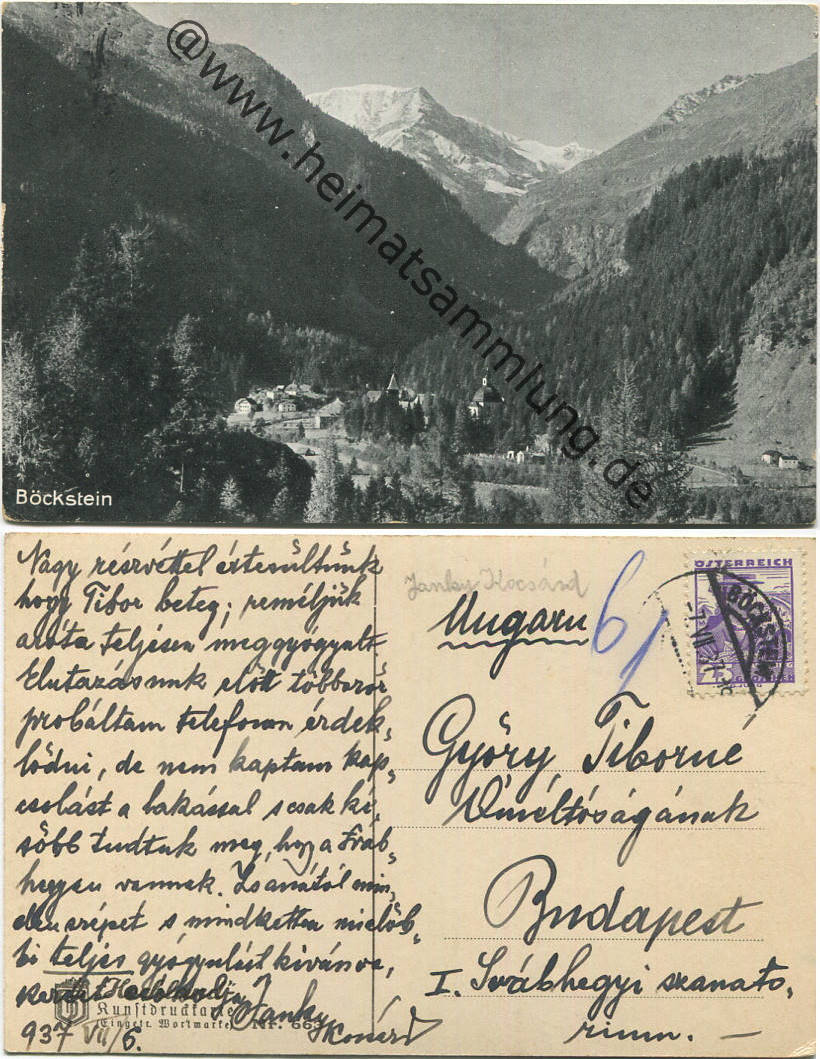 @www.heimatsammlung.de
Böckstein
Nagy részvéttel értesültünk
hogy Tibor beteg; reméljük
azóta teljesen meggyógyult
Elutazásunk előtt többször
próbáltam telefonon érdek-
lődni, de nem kaptam kap-
csolást a lakással s csak ké-
sőbb tudtuk meg, hogy a Sváb-
hegyen vannak. Zsanától min-
den szépet s mindketten mielőb-
bi teljes gyógyulást kívánva,
Janky
937 VII/6.
Kunstdruckkarte
Eingetr. Wortmarke Nr. 663
Janky Kocsárd
Ungarn
61
ÖSTERREICH
BÖCKSTEIN
-7.VII.37
Győry Tiborné
Őméltóságának
Budapest
I. Svábhegyi szanato-
rium. —